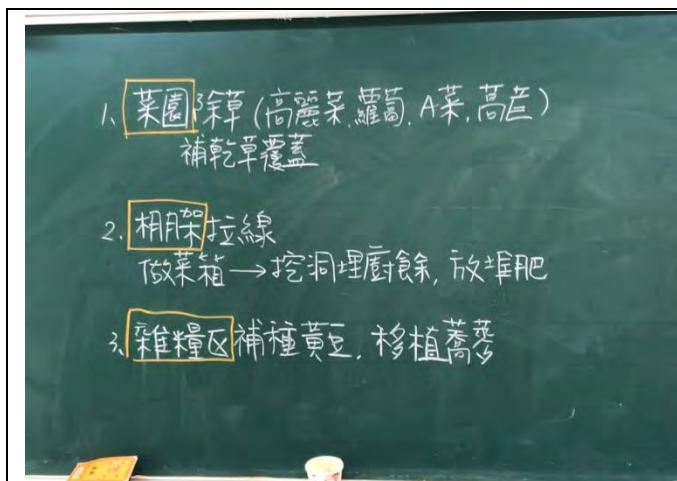 1、菜園除草(高麗菜,蘿蔔,A菜,萵苣)
補乾草覆蓋
2、棚架拉線
做菜箱→挖洞埋廚餘,放堆肥
3、雜糧区補種黃豆,移植蕎麥